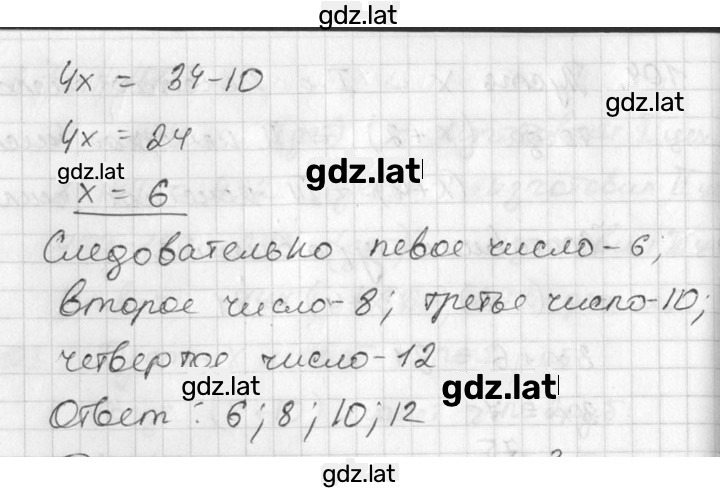 gdz.lat
4x = 34-10
gdz.lat
4x = 24
gdz.lat
gdz.lat
x = 6
Следовательно певое число - 6;
второе число - 8; третье число - 10;
четвертое число - 12
gdz.lat
gdz.lat
Ответ : 6; 8; 10; 12
gdz.lat